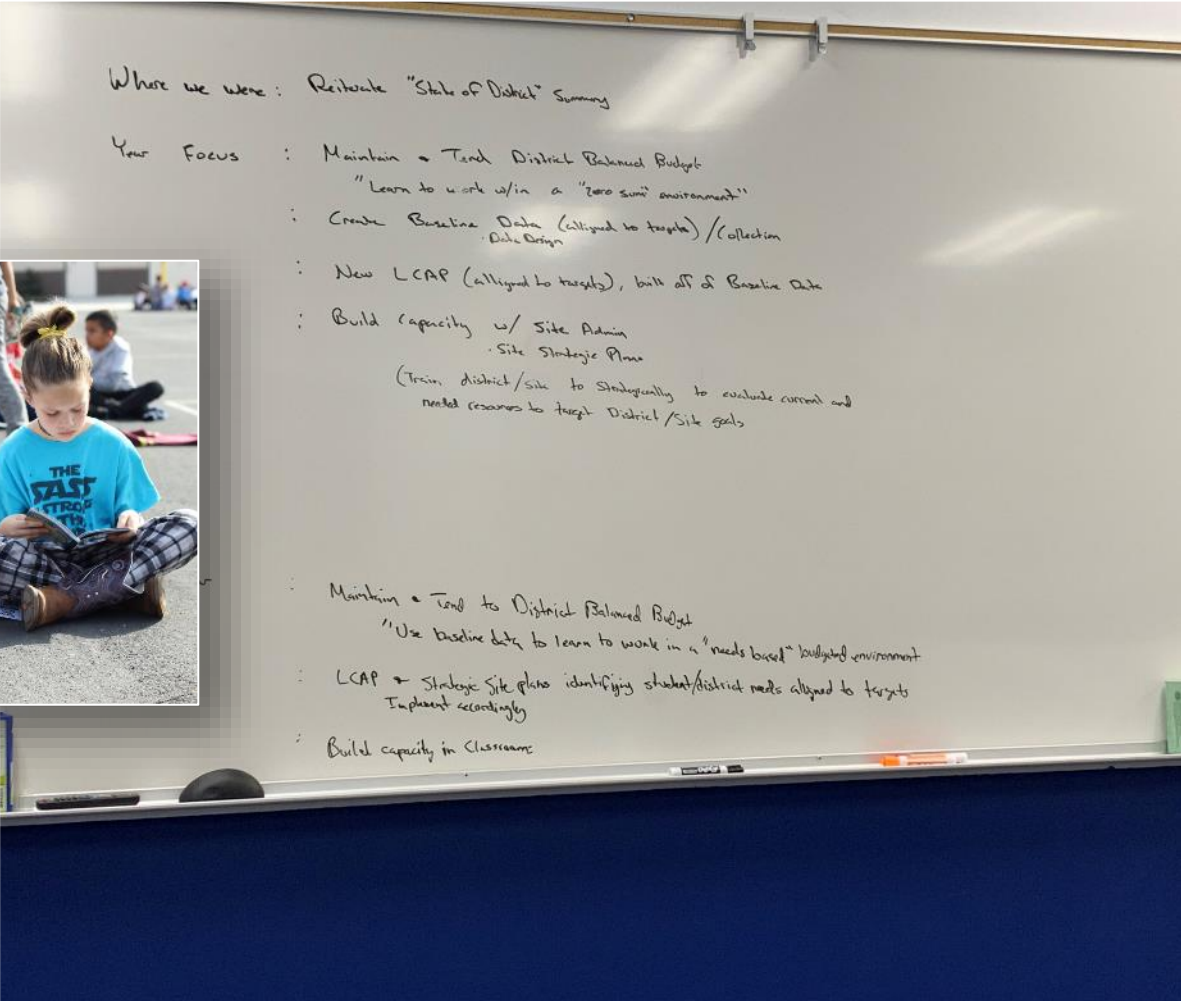 Where we were : Reiterate "State of District" Summary
Year Focus : Maintain & Tend District Balanced Budget
"Learn to work w/in a "zero sum" environment"
: Create Baseline Data (alligned to targets) / Collection
· Data Design
: New LCAP (alligned to targets), built off of Baseline Data
: Build capacity w/ Site Admin
· Site Strategic Plans
(Train district/site to Strategically to evaluate current and
needed resources to target District/Site goals
THE
: Maintain & Tend to District Balanced Budget
"Use baseline data to learn to work in a "needs based" budgeted environment
: LCAP & Strategic Site plans identifying student/district needs aligned to targets
Implement accordingly
: Build capacity in Classrooms